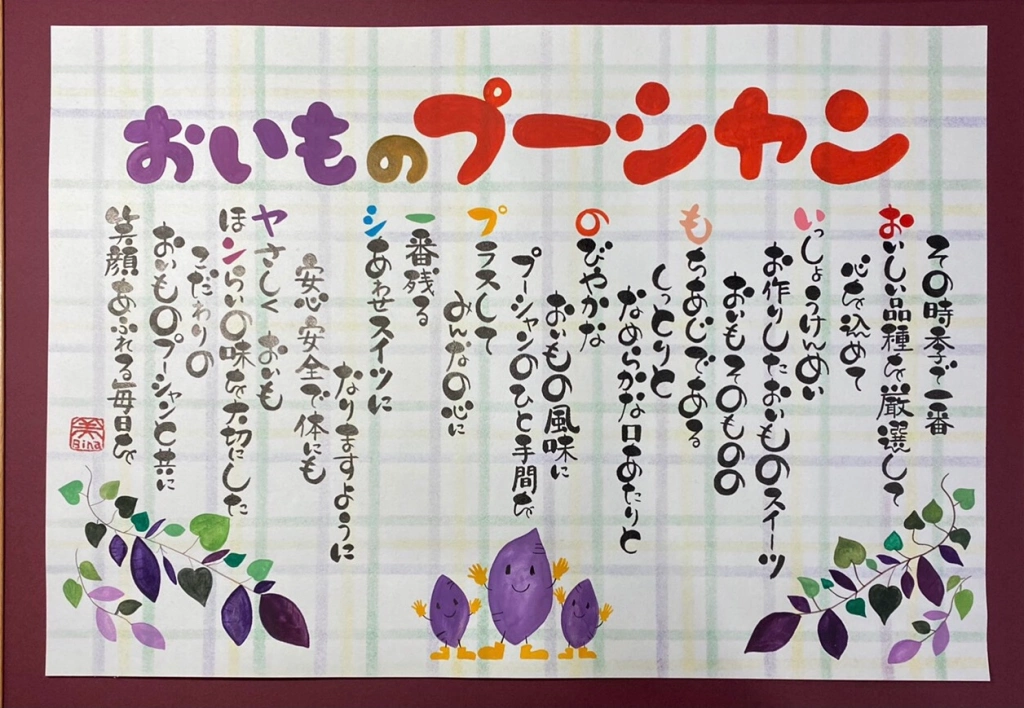 おいものプーシャン
その時季で一番
おいしい品種を厳選して
心を込めて
いっしょうけんめい
お作りしたおいものスイーツ
おいもそのものの
もちあじである
しっとりと
なめらかな口あたりと
のびやかな
おいもの風味に
プーシャンのひと手間を
プラスして
みんなの心に
一番残る
シあわせスイーツに
なりますように
安心安全で体にも
ヤさしくおいも
ほンらいの味を大切にした
こだわりの
おいものプーシャンと共に
笑顔あふれる毎日を
美
Bina